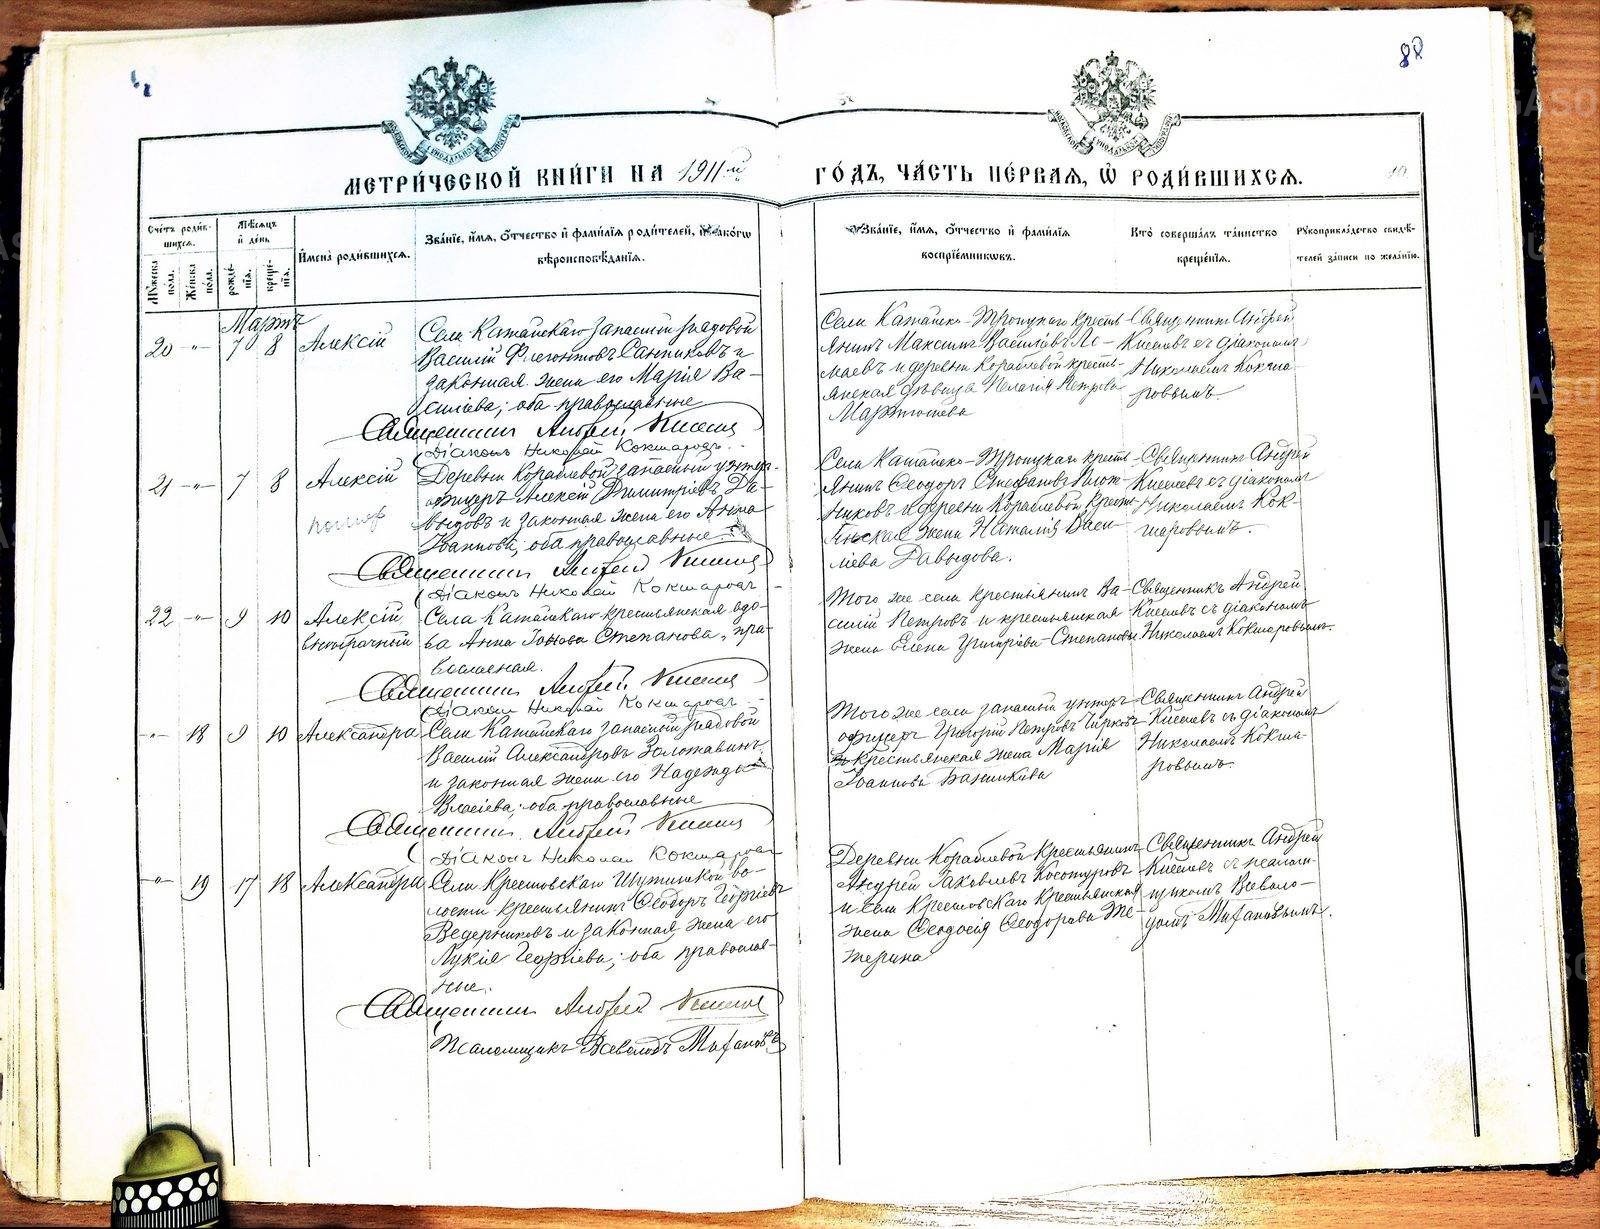 88
МЕТРИ́ЧЕСКОЙ КНИ́ГИ НА 1911й ГО́ДЪ, ЧА́СТЬ ПЕ́РВАЯ, Ѡ РОДИ́ВШИХСЯ.
Сче́тъ роди́в-
шихся.
Му́жеска по́ла.
Же́нска по́ла.
Мѣ́сяцъ и҆ де́нь
рожде́-
нїя.
креще́-
нїя.
И҆мена̀ роди́вшихся.
Зва́нїе, и҆́мя, о҆́тчество и҆ фами́лїя роди́телей, и҆ како́гѡ
вѣроисповѣ́данїя.
Зва́нїе, и҆́мя, о҆́тчество и҆ фами́лїя
воспрїе́мниковъ.
Кто̀ соверша́лъ та́инство
креще́нїя.
Рꙋкоприкла́дство свидѣ́-
телей за́писи по жела́нїю.
Мартъ
20 -"- 7 8 Алексій
Села Катайскаго запасной рядовой
Василій Флегонтовъ Санников и
законная жена его Марія Ва-
силіева; оба православные
Священникъ Андрей Киселев
Діаконъ Николай Кокшаров
Села Катайско-Троицкаго кресть-
янинъ Максимъ Василіевъ По-
маевъ и деревни Кораблевой кресть-
янская дѣвица Пелагія Петрова
Мартюшева
Священникъ Андрей
Киселевъ съ діакономъ
Николаемъ Кокша-
ровымъ.
21 -"- 7 8 Алексій
Деревни Кораблевой запасный унтер-
офицеръ Алексій Димитріевъ Да-
выдовъ и законная жена его Анна
Іоаннова; оба православные
Священникъ Андрей Киселев
Діаконъ Николай Кокшаров
Села Катайско-Троицкаго кресть-
янинъ Ѳеодоръ Стефановъ Плот-
никовъ и деревни Кораблевой крест-
янская жена Наталія Васи-
ліева Давыдова.
Священникъ Андрей
Киселевъ съ діакономъ
Николаемъ Кок-
шаровымъ.
22 -"- 9 10 Алексій
внѣбрачный
Села Катайскаго крестьянская вдо-
ва Анна Іонова Степанова, пра-
вославная.
Священникъ Андрей Киселев
Діаконъ Николай Кокшаров
Того же села крестьянинъ Ва-
силій Петровъ и крестьянская
жена Елена Григоріева Степанова
Священникъ Андрей
Киселевъ съ діакономъ
Николаемъ Кокшаровымъ.
-"- 18 9 10 Александра
Села Катайскаго запасной рядовой
Василій Александровъ Золотавинъ
и законная жена его Надежда
Власіева; оба православные
Священникъ Андрей Киселев
Діаконъ Николай Кокшаров
Того же села запасный унтер-
офицеръ Григорій Петровъ
крестьянская жена Марія
Іоаннова
Священникъ Андрей
Киселевъ съ діакономъ
Николаемъ Кокша-
ровымъ.
-"- 19 17 18 Александра
Села Крестовскаго во-
лости крестьянинъ Ѳеодоръ Георгіевъ
Ведерниковъ и законная жена его
Лукія Георгіева; оба православ-
ные.
Священникъ Андрей Киселев
Псаломщикъ Всеволодъ
Деревни Кораблевой крестьянинъ
Андрей Іаковлевъ Косотуровъ
и села Крестовскаго крестьянская
жена Ѳеодосія Ѳеодорова
Священникъ Андрей
Киселевъ съ псалом-
щикомъ Всеволо-
домъ